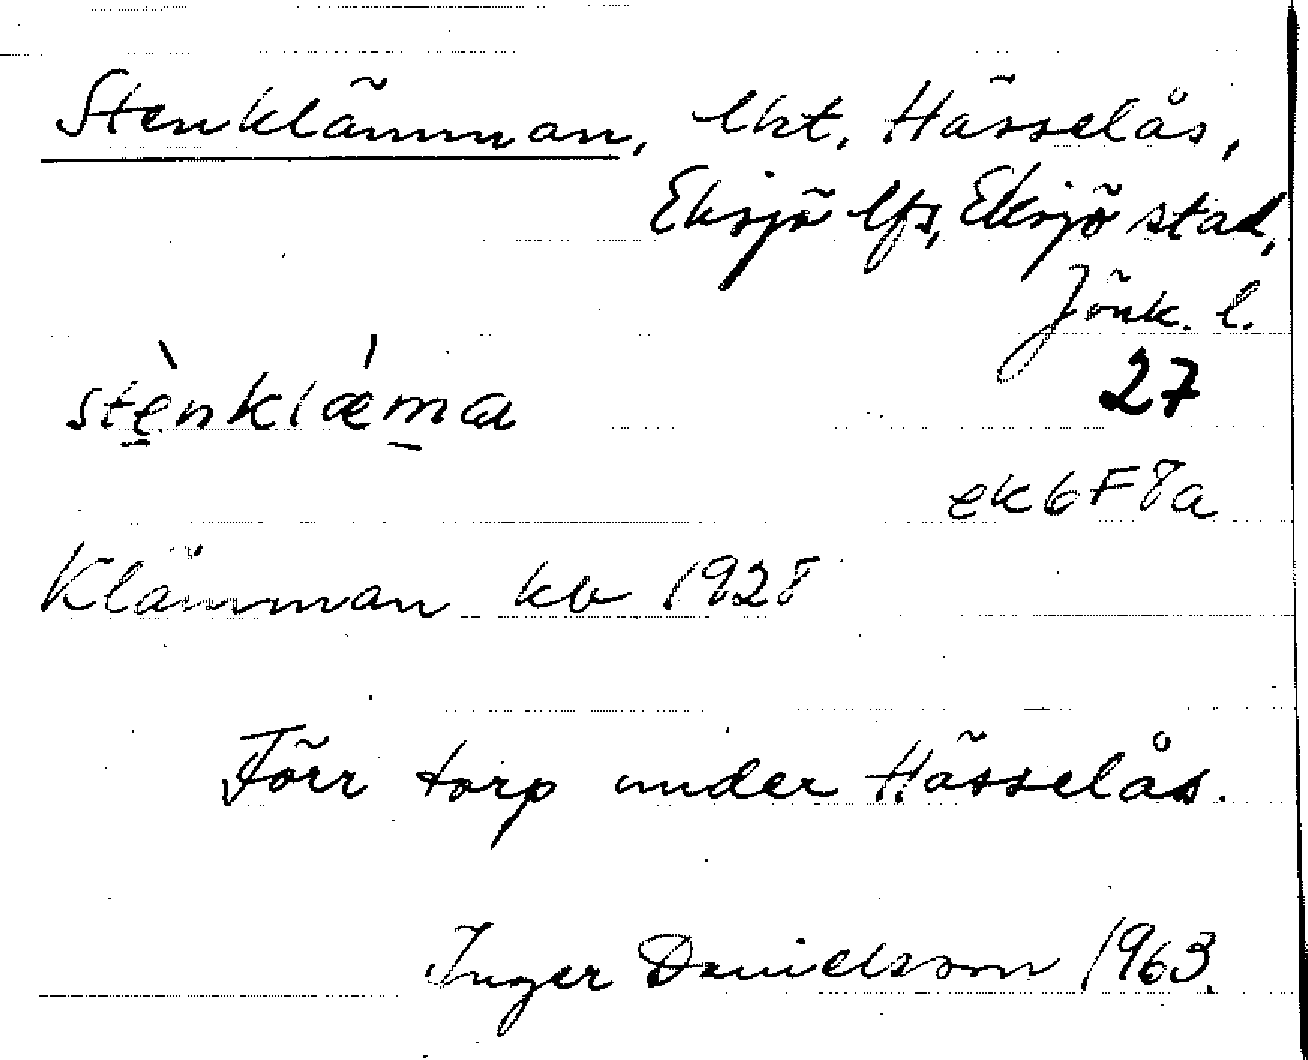 Stenklämman, lht. Hässelås,
Eksjö lfs, Eksjö stad,
Jönk. l.
stè̱nklǽm̱a
27
ek 6 F 8 a
Klämman kb 1928
Förr torp under Hässelås.
Inger Danielsson 1963.